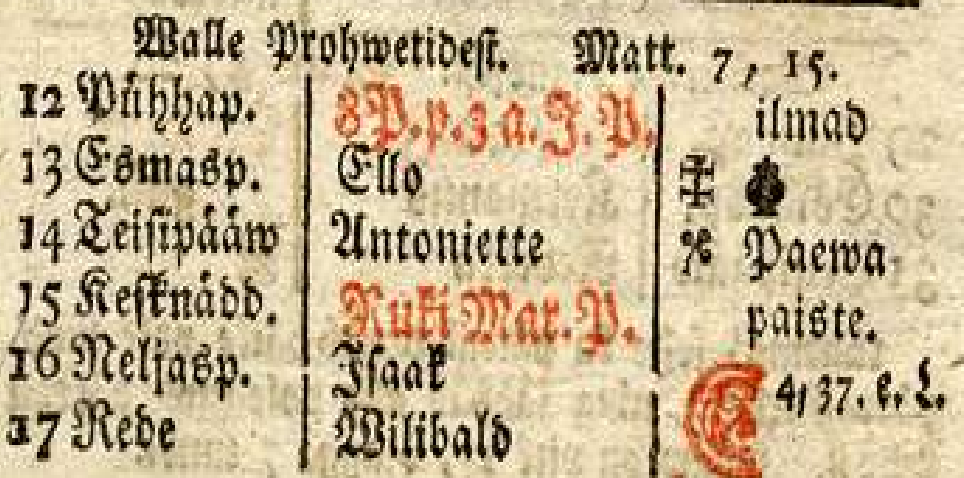 Walle Prohwetidest. Matt. 7, 15.
12 Pühhap. 8 P. p. 3 a. J. P. ilmad
13 Esmasp. Ello
14 Teisipääw Antoniette Paewa-
15 Kesknädd. Ruki Mar. P. paiste.
16 Neljasp. Isaak 4, 37. e. L.
17 Rede Wilibald